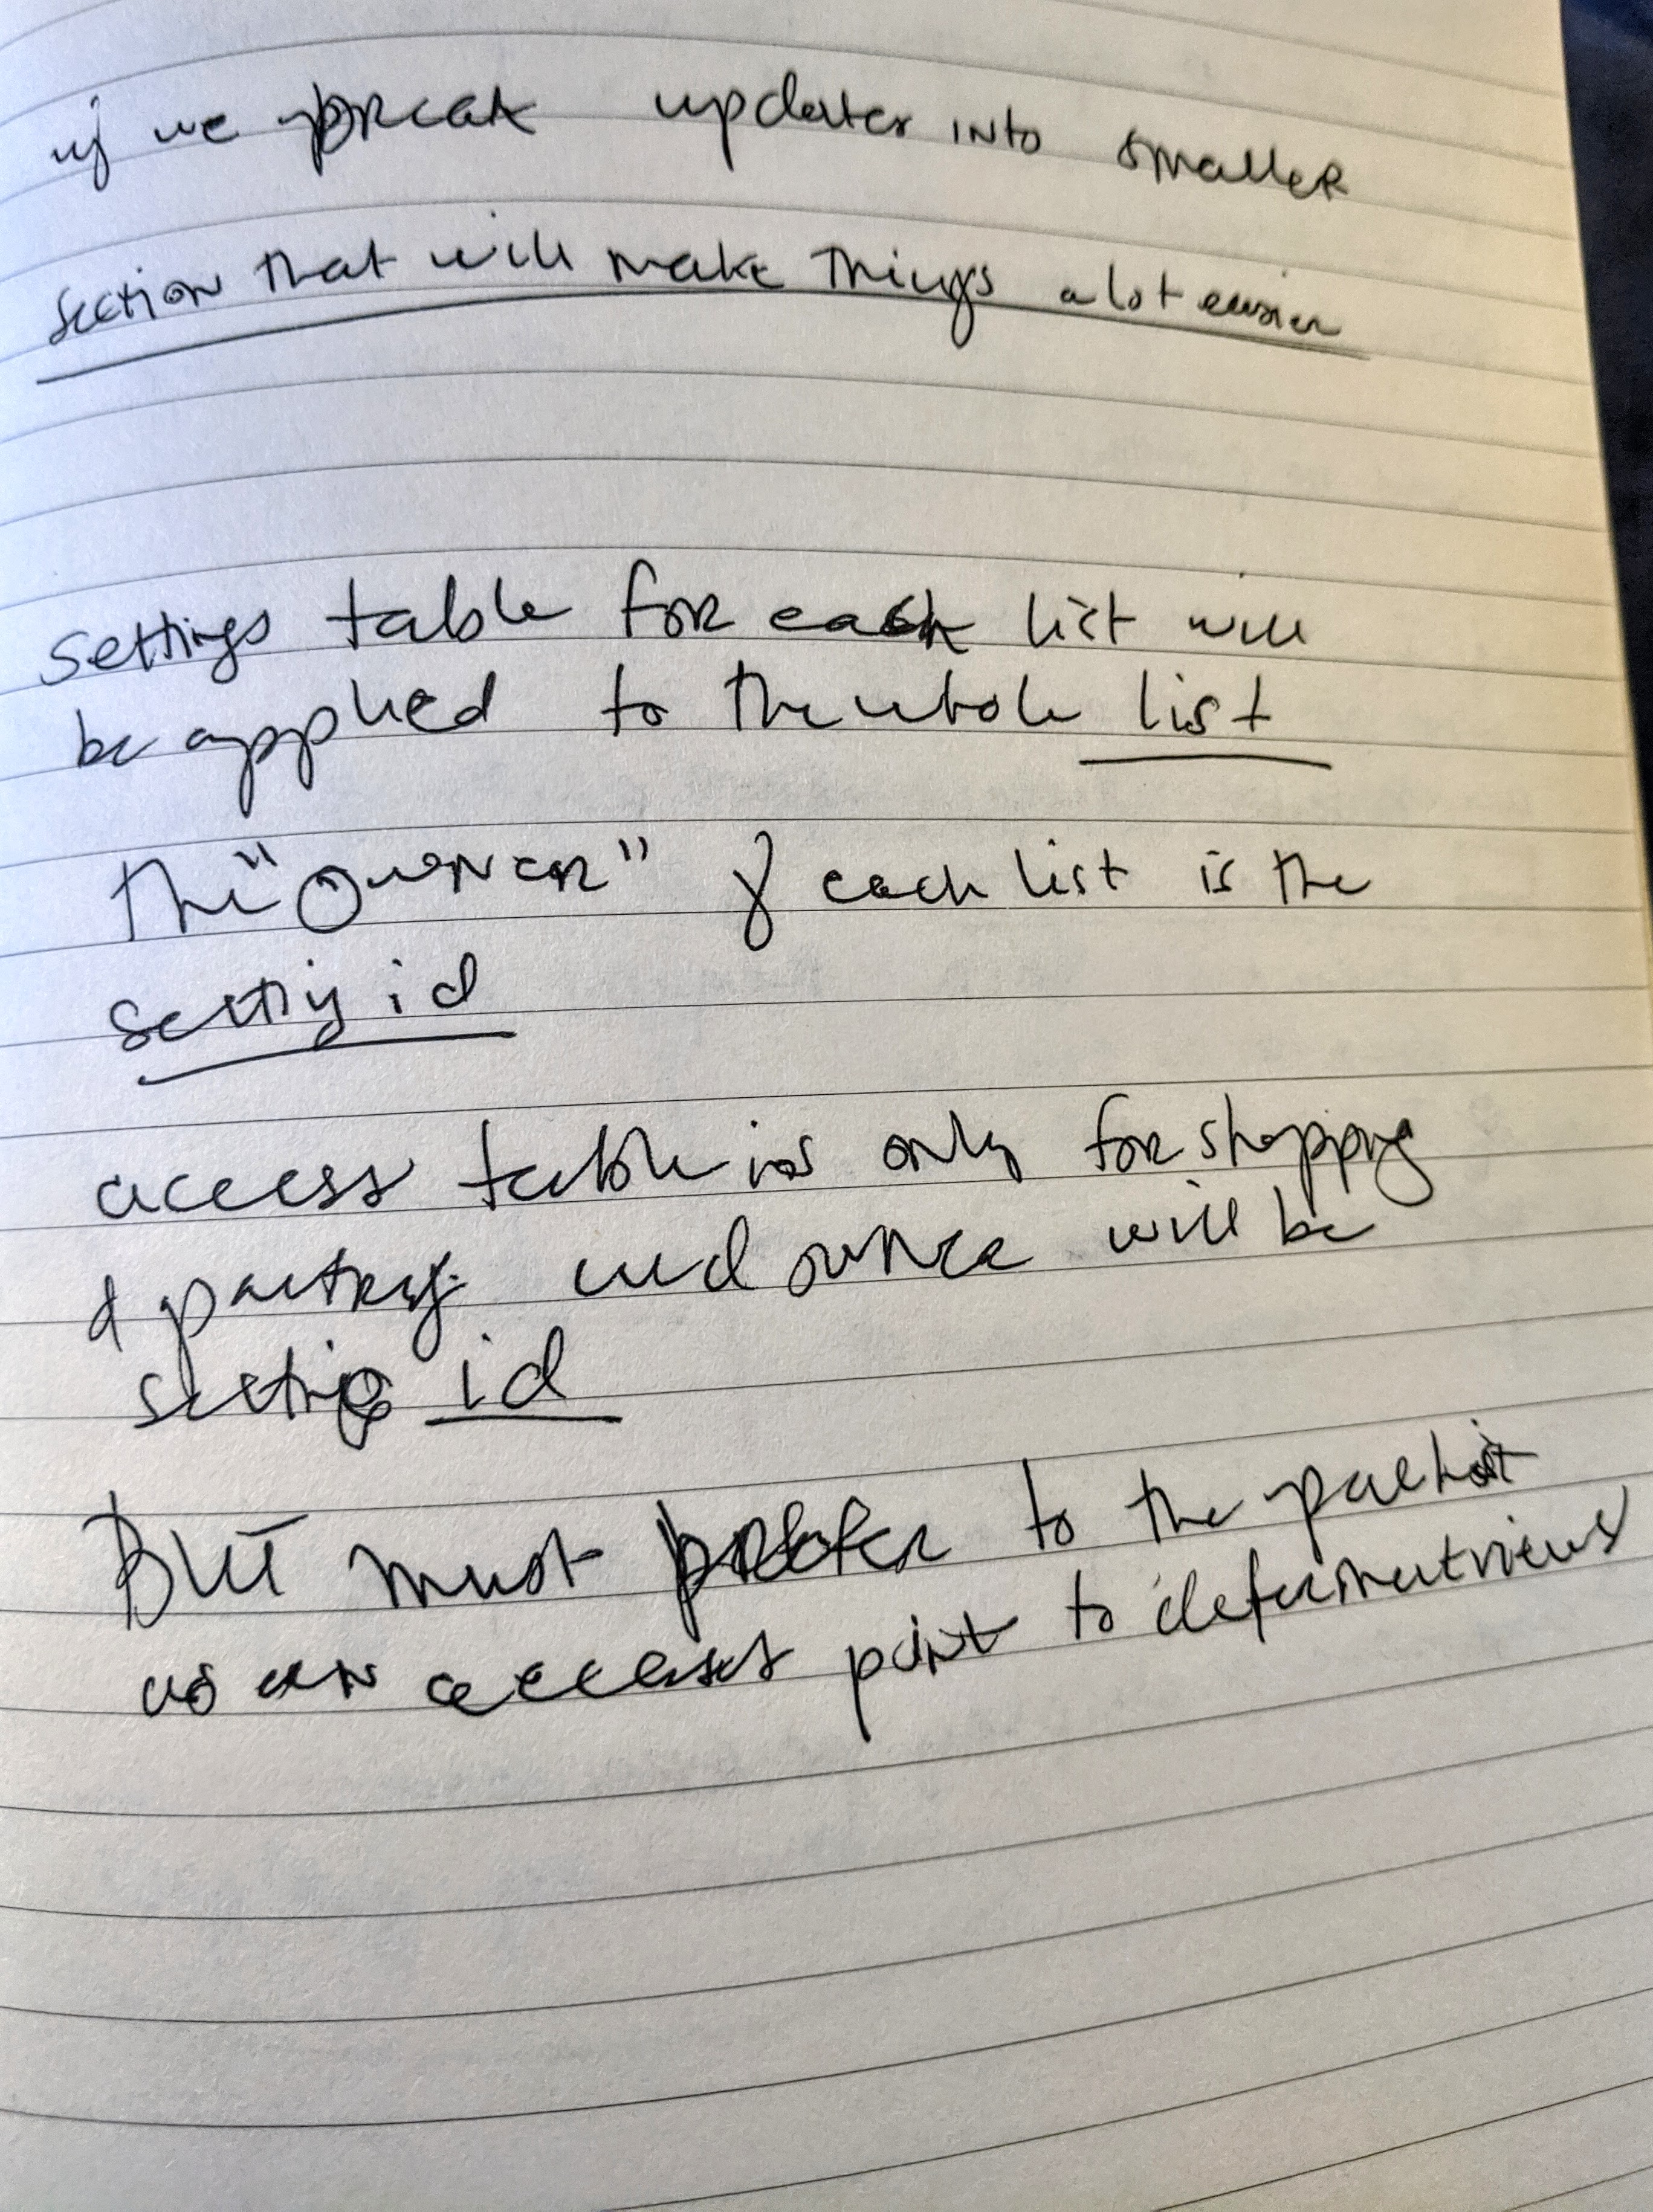 if we break updates into smaller
section that will make things a lot easier
settings table for each list will
be applied to the whole list
the "owner" of each list is the
setting id
access table is only for shopping
& pantry and owner will be
setting id
But must to the
as an access point to